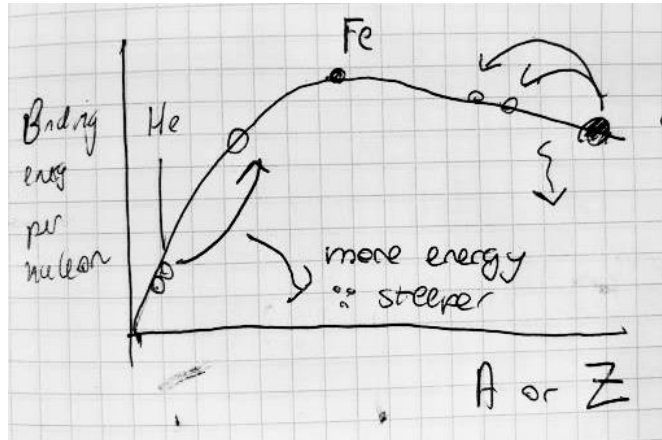 Fe
Binding
energ
per
nucleon
He
more energy
∵ steeper
A or Z